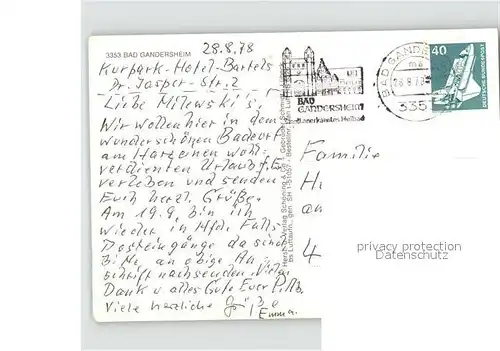 3353 BAD GANDERSHEIM
28.8.78
Kurpark-Hotel-Bartels
Dr. Jasper-Str. 2
Liebe Milewski's,
Wir wollen hier in dem
wunderschönen Badeort
am Harz einen wohl-
verdienten Urlaub
verleben und senden
Euch herzl. Grüße.
Am 19.9. bin ich
wieder in Hfd. Falls
Posteingänge da sind
bitte an obige An-
schrift nachsenden. Viel
Dank u. alles Gute Euer
Viele herzliche
Emma
BAD
GANDERSHEIM
BAD GANDE
335
40
DEUTSCHE BUNDESPOST
Familie
H
an
4
privacy protection
Datenschutz